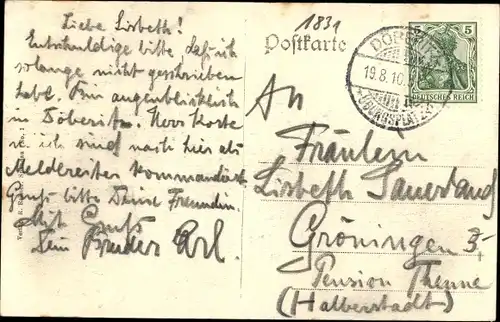 Liebe Lisbeth!
Entschuldige bitte, daß ich
solange nicht geschrieben
habe. Bin augenblicklich
in Döberitz. Herr Korte
u. ich sind nach hier als
Meldereiter kommandiert.
Gruß bitte Deine Freundin.
Mit Gruß
Dein Bruder Karl.
1839
Postkarte
DÖBERITZ
19.8.10.
ÜBUNGSPLATZ
5
DEUTSCHES REICH
An
Fräulein
Lisbeth Sauerland
Gröningen
Pension Thenne
(Halberstadt)